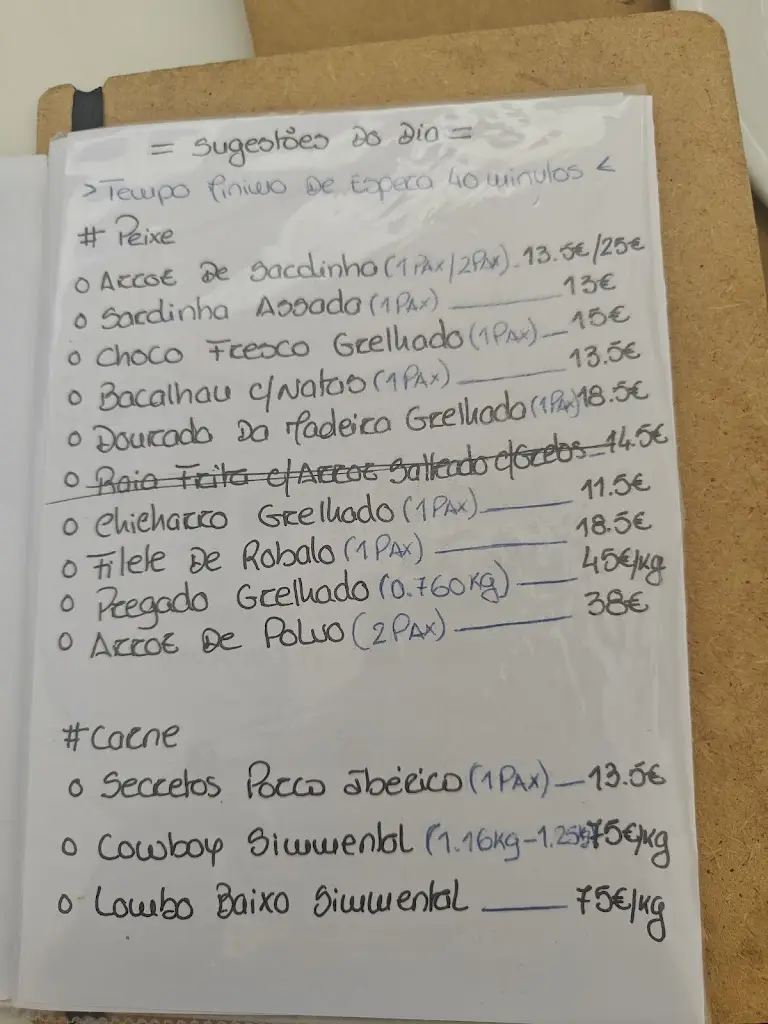 = Sugestões Do Dia =
> Tempo Mínimo De Espera 40 minutos <
# Peixe
o Arroz De Sardinha (1 Pax / 2 Pax) - 13.5€/25€
o Sardinha Assada (1 Pax) ______ 13€
o Choco Fresco Grelhado (1 Pax) _ 15€
o Bacalhau c/Natas (1 Pax) ______ 13.5€
o Dourada Da Madeira Grelhada (1 Pax) 18.5€
o Raia Frita c/Arroz Salteado c/Grelos - 14.5€
o Chicharro Grelhado (1 Pax) _____ 11.5€
o Filete De Robalo (1 Pax) ______ 18.5€
o Pregado Grelhado (0.760 Kg) ___ 45€/kg
o Arroz De Polvo (2 Pax) ______ 38€
# Carne
o Secretos Porco Ibérico (1 Pax) _ 13.5€
o Cowboy Simmental (1.16kg - 1.25kg) 75€/kg
o Lombo Baixo Simmental ____ 75€/kg